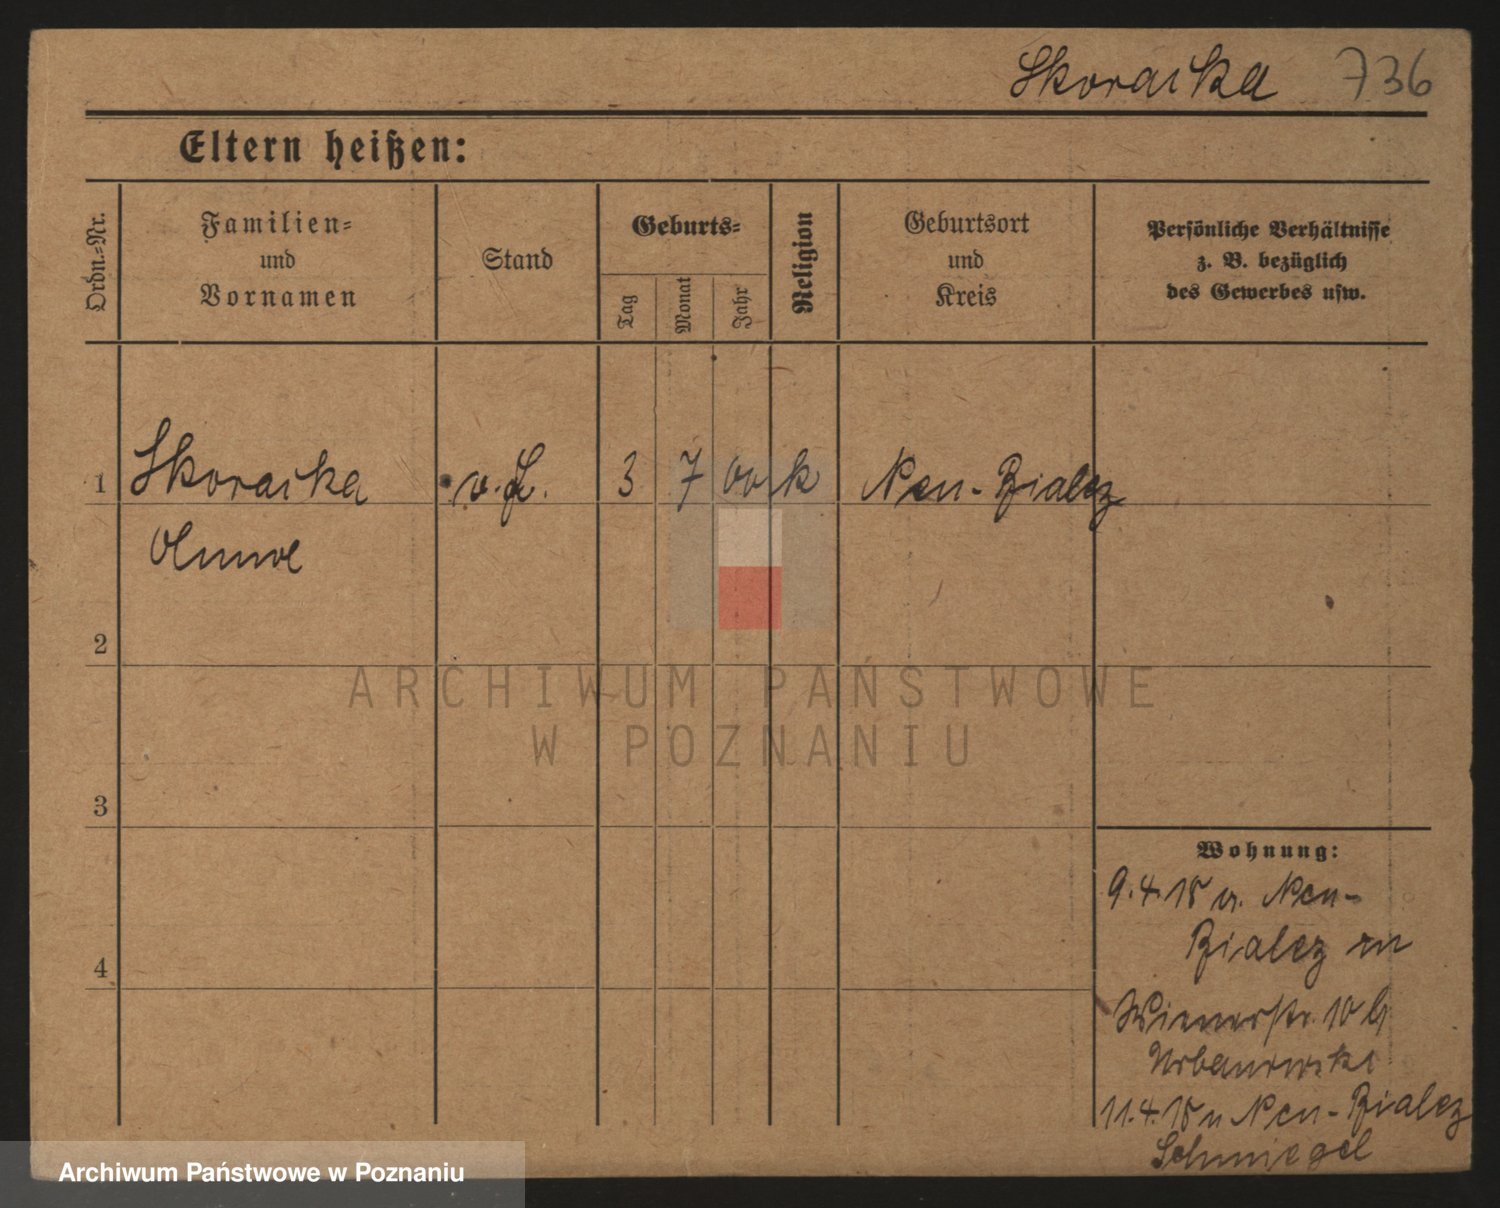 Skoracka 736
Eltern heißen:
Ordn.-Nr.
Familien-
und
Vornamen
Stand
Geburts-
Tag
Monat
Jahr
Religion
Geburtsort
und
Kreis
Persönliche Verhältnisse
z. B. bezüglich
des Gewerbes usw.
1 Skoracka v. L. 3 7 00 k Neu-Bialcz
2
3
4
ARCHIWUM PAŃSTWOWE
W POZNANIU
Wohnung:
9.4.18 v. Neu-
Bialcz in
Wienerstr. 10 b
Urbanowski
11.4.18 n Neu-Bialcz
Schmiegel
Archiwum Państwowe w Poznaniu